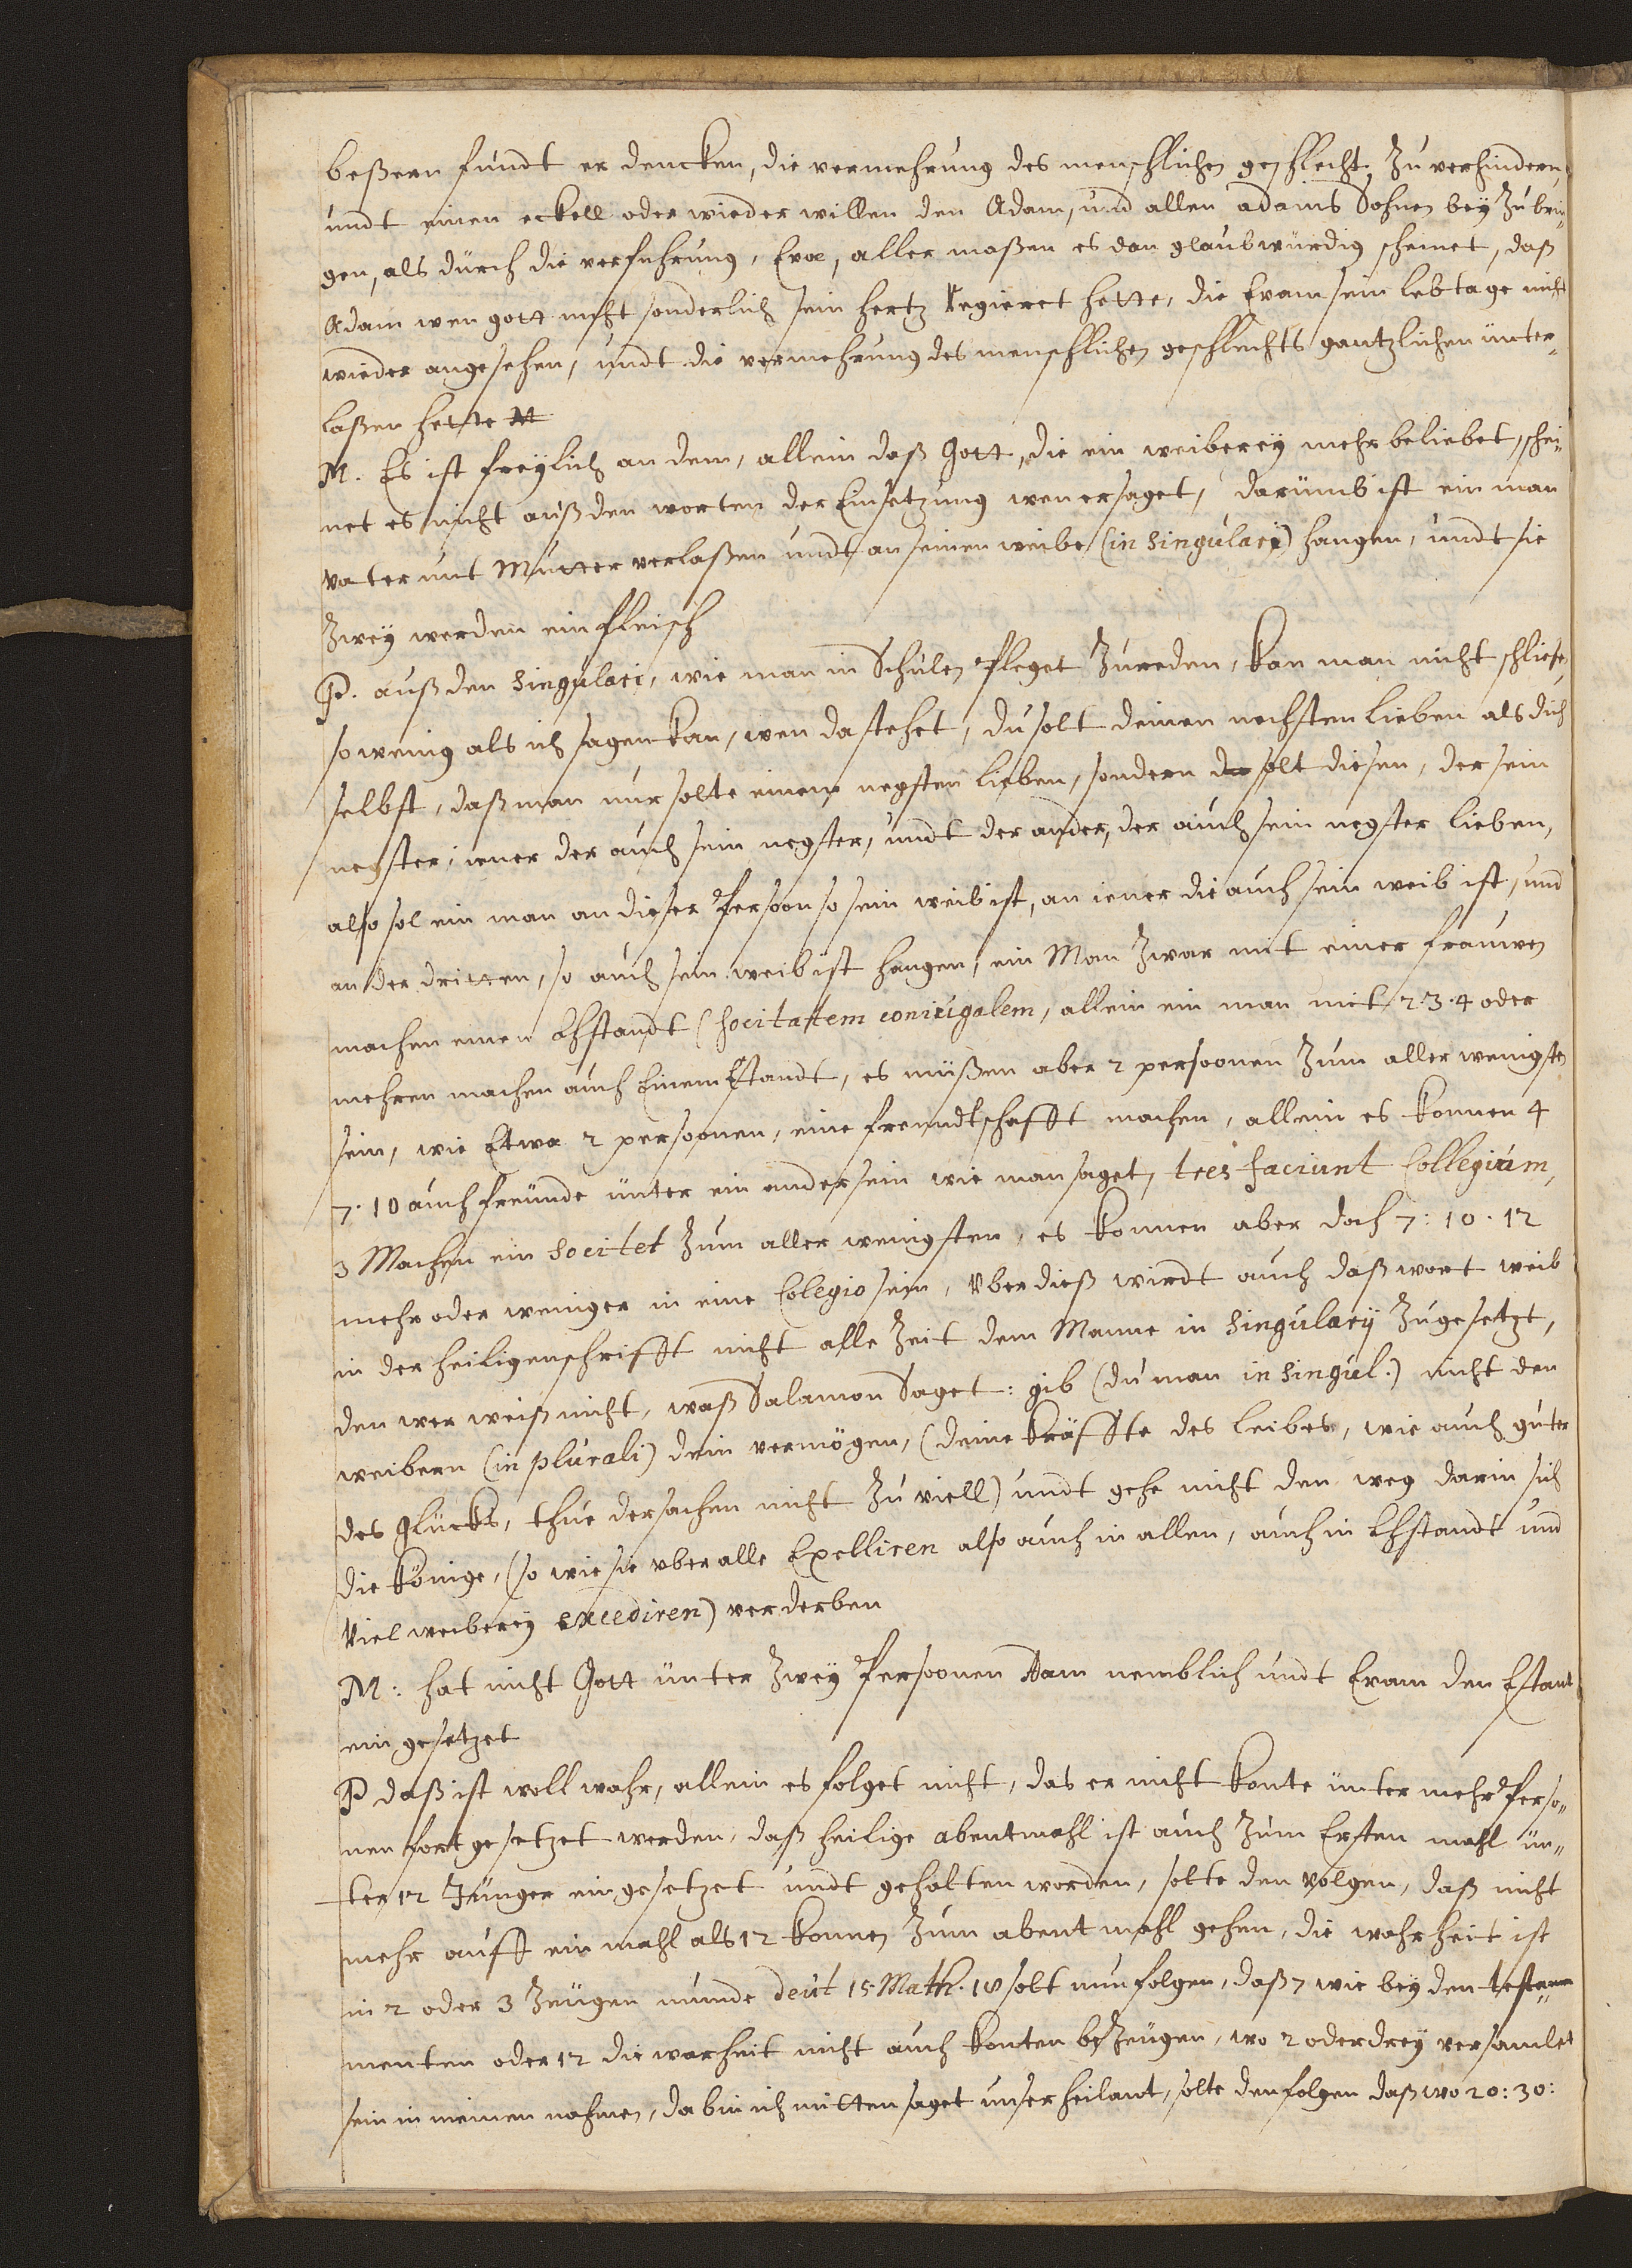 beßern fundt er dencken, die vermehrung des menschlichen geschlecht, zu verhindern,
undt einen eckell oder wieder willen den Adam, und allen adams Sohnen bey zu brin„
gen, als durch die verfuhrung, Evæ, aller maßen es dan glaubwürdig scheinet, daß
Adam wen gott nicht sonderlich sein hertz Regieret hette, die Evam sein lebtage nicht
wieder angesehen, undt die vermehrung des menschlichen geschlechts gantzlichen unter„
laßen hette M
M. Es ist freylich an dem, allein daß Gott, die ein weiberey mehr beliebet, schei„
net es nicht auß den worten der Einsetzung wen er saget, darumb ist ein man
vater unt Mutter verlaßen undt an seinen weibe (in singulari) hangen, undt sie
zwey werden ein fleisch
P. auß den singulari, wie man in Schulen Pfleget zu reden, kan man nicht schließe,
so wenig als ich sagen kan, wen da stehet, du solt deinen nechsten lieben als dich
selbst, daß man nur solte einen negsten lieben, sondern du solt diesen, der sein
negster, iener der auch sein negster, undt der ander, der auch sein negster lieben,
also sol ein man an dieser Persoon so sein weib ist, an iener die auch sein weib ist, und
an der dritten, so auch sein weib ist hangen, ein Man zwar mit einer frauwen
machen einen Ehstandt (socitattem coniugalem, allein ein man mit 2.3.4 oder
mehren machen auch Einem Estandt, es müßen aber 2 persoonen zum aller wenigsten
sein, wie Etwa 2 persoonen, eine freundtschafft machen, allein es konnen 4
7. 10 auch freunde unter ein ander sein wie man saget, tres faciunt Collegium,
3 Machen ein societet zum aller wenigsten, es konnen aber doch 7: 10. 12
mehr oder weniger in eine Colegio sein, Uber dieß wirdt auch daß wort weib
in der heiligenschrifft nicht alle Zeit dem Manne in singulary zugesetzt,
den wer weiß nicht, waß Salamon Saget: gib (du man in singul.) nicht den
weibern (in plurali) dein vermögen, (deine kräffte des leibes, wie auch guter
des glücks, thue der sachen nicht zu viell) undt gehe nicht den weg darin sich
die könige, (so wie sie uber alle Excelliren also auch in allen, auch in Ehstandt und
Viel weiberey excediren) verderben
M: hat nicht Gott unter zwey Persoonen Adam nemblich undt Evam den Estant
ein gesetzet
P daß ist woll wahr, allein es folget nicht, das er nicht konte unter mehr Perso„
nen fort gesetzet werden, daß heilige abentmahl ist auch zum Ersten mahl un„
ter 12 Jünger ein gesetzet undt gehalten worden, solte den volgen, daß nicht
mehr auff ein mahl als 12 konnen zum abent mahl gehen, die wahrheit ist
in 2 oder 3 Zeugen munde deut 15 Math. 18 solt nun folgen, daß 7 wie bey den testa„
menten oder 12 die warheit nicht auch konten bezeugen, wo 2 oder drey versamlet
sein in meinen nahmen, da bin ich mitten saget unser heilant, solte den folgen daß wo 20: 30: